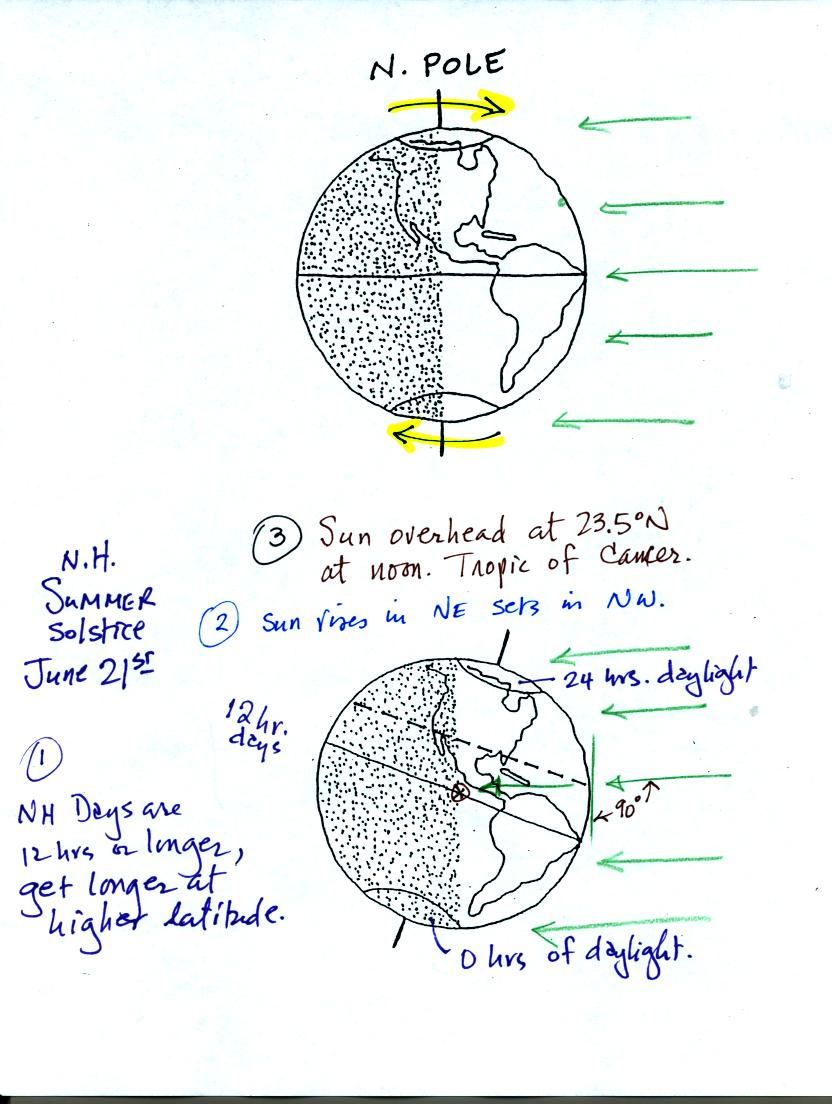 N. POLE
3 Sun overhead at 23.5°N
at noon. Tropic of Cancer.
N.H.
SUMMER
Solstice
June 21st
2 Sun rises in NE sets in NW.
24 hrs. daylight
12 hr.
days
90°
1
NH Days are
12 hrs or longer,
get longer at
higher latitude.
0 hrs of daylight.